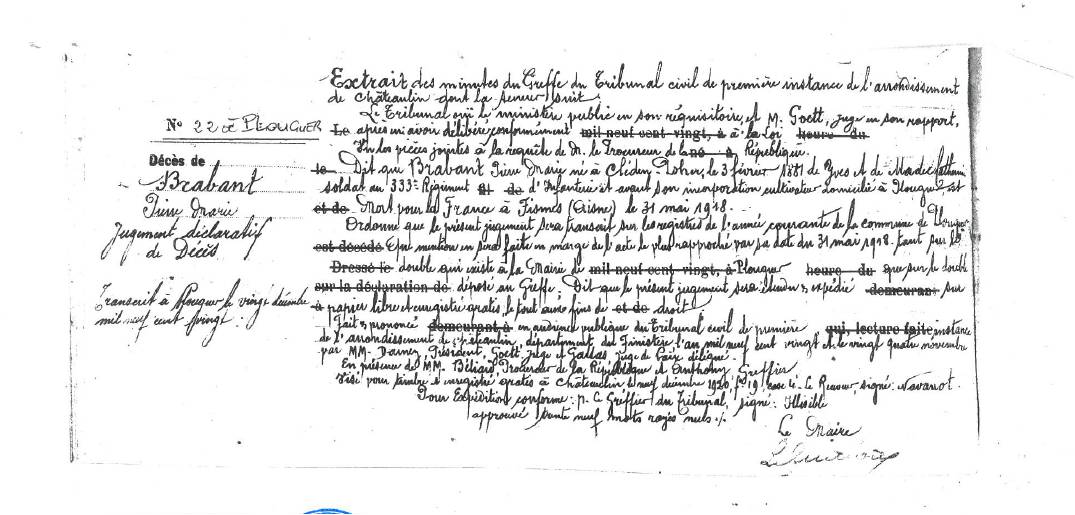 Extrait des minutes du Greffe du Tribunal civil de première instance de l'arrondissement
de Châteaulin dont la teneur suit
Le Tribunal ouï le ministère public en son réquisitoire, et M. Goett, juge en son rapport,
Le après en avoir délibéré conformément mil neuf cent vingt, à à la loi heure du
Vu les pièces jointes à la requête de M. le Procureur de la né à République.
le Dit que Brabant Pierre Marie né à Cléden-Poher, le 3 février 1881 de Yves et de Marie
soldat au 333e Régiment et de d'Infanterie et avant son incorporation cultivateur domicilié à Plouguer est
et de Mort pour la France à Fismes (Aisne) le 31 mai 1918.
Ordonne que le présent jugement sera transcrit sur les registres de l'année courante de la commune de Plouguer
est décédé Que mention en sera faite en marge de l'acte le plus rapproché par sa date du 31 mai 1918. tant sur le
Dressé le double qui existe à la Mairie de mil neuf cent vingt, à Plouguer heure du que sur le double
sur la déclaration de déposé au Greffe. Dit que le présent jugement sera expédié demeurant sur
à papier libre et enregistré gratis, le tout aux fins de et de droit
Fait et prononcé demeurant, à en audience publique du Tribunal civil de première qui, lecture faite instance
de l'arrondissement de Châteaulin, département du Finistère l'an mil neuf cent vingt et le vingt quatre novembre
par MM. Damey, Président, Goett, juge et Gallas, juge de Paix délégué.
En présence de MM. Procureur de la République et Anthony Greffier
Visé pour timbre et enregistré gratis à Châteaulin le neuf décembre 1920, f° 19, case Le Receveur signé: Navarot.
Pour Expédition conforme: p. Le Greffier du Tribunal, signé: Illisible
approuvé neuf mots rayés nuls ./.
Le Maire
N° 22 DE PLOUGUER
Décès de
Brabant
Pierre Marie
Jugement déclaratif
de Décès
Transcrit à Plouguer le vingt décembre
mil neuf cent vingt.